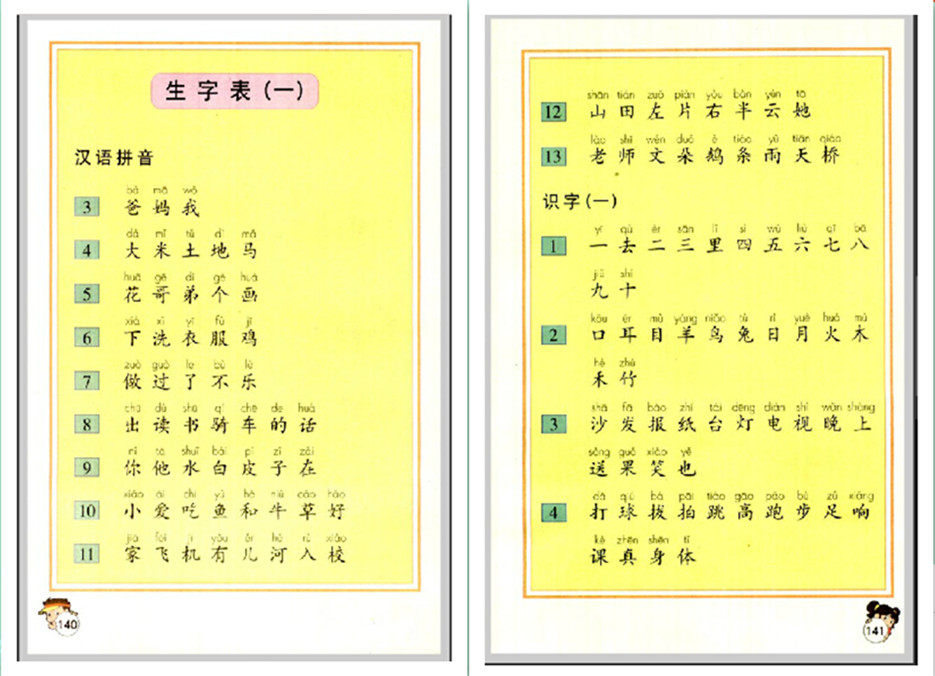 生字表(一)
汉语拼音
bà mā wǒ
3 爸 妈 我
dà mǐ tǔ dì mǎ
4 大 米 土 地 马
huā gē dì gè huà
5 花 哥 弟 个 画
xià xǐ yī fú jī
6 下 洗 衣 服 鸡
zuò guò le bù lè
7 做 过 了 不 乐
chū dú shū qí chē de huà
8 出 读 书 骑 车 的 话
nǐ tā shuǐ bái pí zǐ zài
9 你 他 水 白 皮 子 在
xiǎo ài chī yú hé niú cǎo hǎo
10 小 爱 吃 鱼 和 牛 草 好
jiā fēi jī yǒu ér hé rù xiào
11 家 飞 机 有 儿 河 入 校
140
shān tián zuǒ piàn yòu bàn yún tā
12 山 田 左 片 右 半 云 她
lǎo shī wén duǒ é tiáo yǔ tiān qiáo
13 老 师 文 朵 鹅 条 雨 天 桥
识字(一)
yī qù èr sān lǐ sì wǔ liù qī bā
1 一 去 二 三 里 四 五 六 七 八
jiǔ shí
九 十
kǒu ěr mù yáng niǎo tù rì yuè huǒ mù
2 口 耳 目 羊 鸟 兔 日 月 火 木
hé zhú
禾 竹
shā fā bào zhǐ tái dēng diàn shì wǎn shàng
3 沙 发 报 纸 台 灯 电 视 晚 上
sòng guǒ xiào yě
送 果 笑 也
dǎ qiú bá pāi tiào gāo pǎo bù zú xiǎng
4 打 球 拔 拍 跳 高 跑 步 足 响
kè zhēn shēn tǐ
课 真 身 体
141